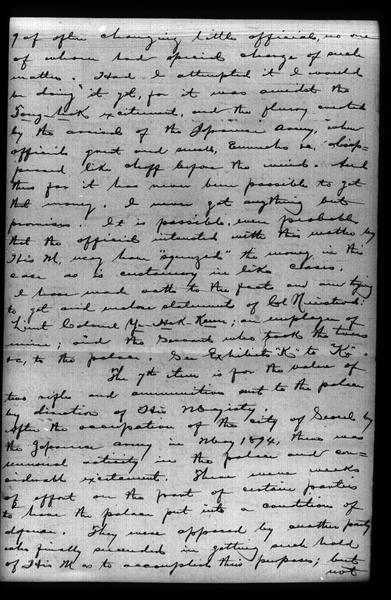 & of often changing little officials, no one
of whom had special charge of such
matters. Had I attempted it I would
be doing it yet, for it was amidst the
Tong-hak excitement, and the flurry created
by the arrival of the Japanese Army, when
officials great and small, Eunuchs &c, disap-
peared like chaff before the wind. And
thus far it has never been possible to get
that money. I never got anything but
promises. It is possible, even probable
that the official intrusted with this matter by
His M. may have "squeezed" the money in this
case as is customary in like cases.
I have made oath to the facts and am trying
to get and enclose statement of Col Nienstead:
Lieut Colonel Ye-Hak-Kewn; an employee of
mine; and the Servant who took the
&c, to the palace. See Exhibits "K" to
The 7th item is for the value of
two rifles and ammunition sent to the palace
by direction of His Majesty.
After the occupation of the city of Seoul by
the Japanese army in May 1894, there was
unusual activity in the palace and con-
siderable excitement. There were weeks
of effort on the part of certain parties
to have the palace put into a condition of
defense. They were opposed by another party
who finally succeeded in getting such hold
of His M as to accomplish their purposes; but
not